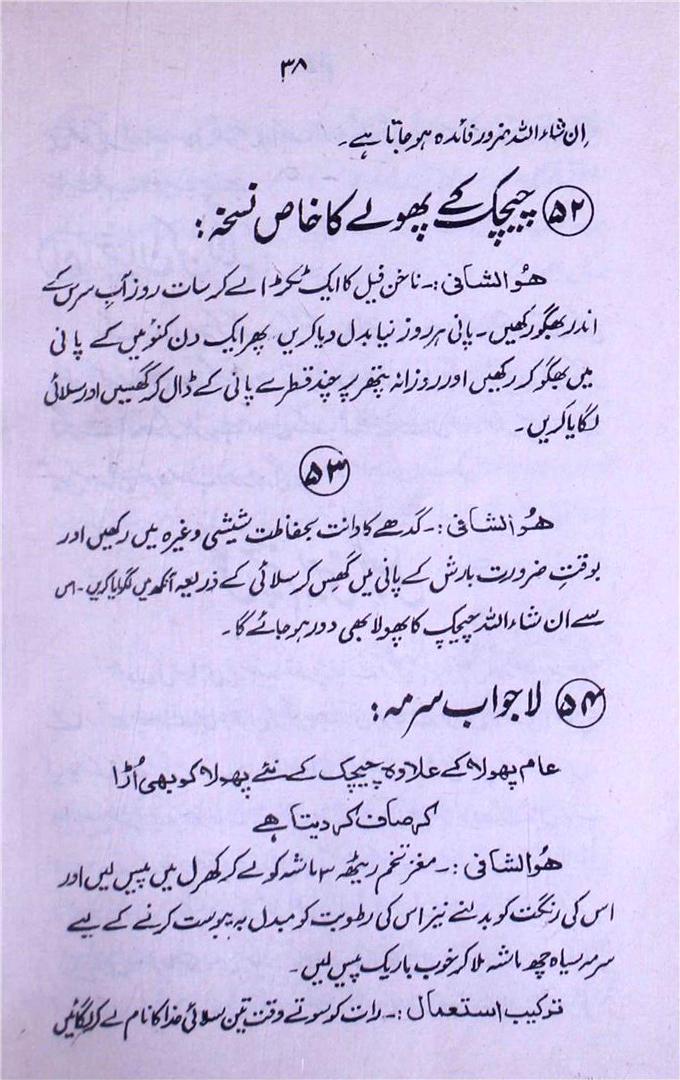 ۳۸
اِن شاء اللہ ضرور فائدہ ہو جاتا ہے۔
۵۲ چیچک کے پھولے کا خاص نسخہ:
ھُو الشافی :۔ ناخن فیل کا ایک ٹکڑا لے کر سات روز آبِ سرس کے
اندر بھگو رکھیں۔ پانی ہر روز نیا بدل دیا کریں پھر ایک دن کنوئیں کے پانی
میں بھگو کر رکھیں اور روزانہ پتھر پر چند قطرے پانی کے ڈال کر گھسیں اور سلائی
لگایا کریں۔
۵۳
ھُو الشافی :۔ گدھے کا دانت بحفاظت شیشی وغیرہ میں رکھیں اور
بوقتِ ضرورت بارش کے پانی میں گھِس کر سلائی کے ذریعہ آنکھ میں لگوایا کریں۔ اس
سے ان شاء اللہ چیچک کا پھولا بھی دور ہو جائے گا۔
۵۴ لاجواب سرمہ:
عام پھولا کے علاوہ چیچک کے نئے پھولا کو بھی اُڑا
کر صاف کر دیتا ہے
ھُو الشافی :۔ مغز تخم ریٹھہ ۳ ماشہ کو لے کر کھرل میں پیس لیں اور
اس کی رنگت کو بدلنے نیز اس کی رطوبت کو مبدل بہ یبوست کرنے کے لیے
سرمہ سیاہ چھ ماشہ ملا کر خوب باریک پیس لیں۔
ترکیب استعمال :۔ رات کو سوتے وقت تین سلائی خدا کا نام لے کر لگائیں